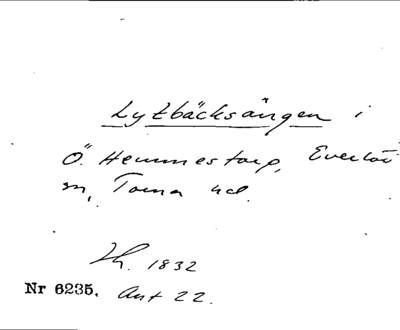 Lytbäcksängen i
Ö. Hemmestorp, Everlöv
sn, Torna hd.
Lh. 1832
Nr 6235. Ant 22.